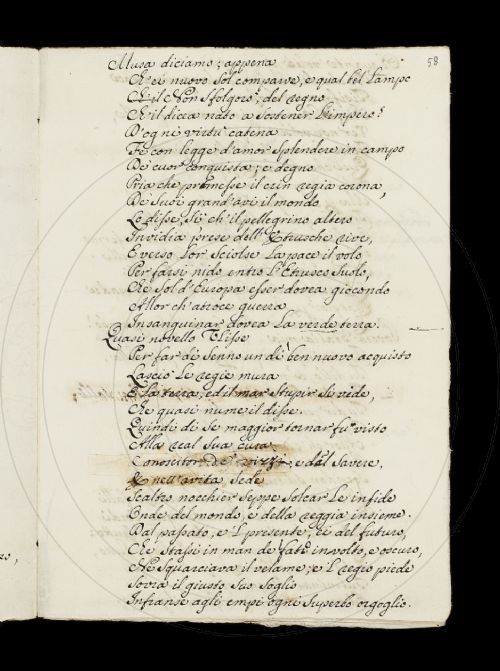 58
Musa diciamo; appena
Ch'ei nuovo Sol comparve, e qual bel Lampo
Ch'il Non Sfolgorò, del regno
Ch'il dicea nato a Sostener L'impero:
D'ogni virtù catena
Fè con legge d'amor Splendere in campo
De' cuor' conquista; e degno
Pria che premesse il crin regia corona,
De' Suoi grand'avi il mondo
Lo disse, Sì ch'il pellegrino altero
Invidia prese dell'Etrusche rive,
E verso Lor Sciolse La pace il volo
Per farsi nido entro L'Etrusco Suolo,
Che Sol d'Europa esser dovea giocondo
Allor ch'atroce guerra
Insanguinar dovea La verde terra.
Quasi novello Ulisse
Per far di Senno un dì ben nuovo acquisto
Lasciò Le regie mura
E la terra, ed il mar Stupir Si vide,
Che quasi nume il disse.
Quindi di Se maggior tornar fu visto
Alla real Sua cura
Conoscitor de' vizzi, e dal Savere,
E nell'avita Sede
Scaltro nocchier Seppe Solcar Le infide
Onde del mondo, e della reggia insieme.
Dal passato, e 'l presente, ei del futuro,
Che Stassi in man de' fato involto, e oscuro,
Ne Squarciava il velame; e 'l regio piede
Sovra il giusto Suo Soglio
Infranse agli empi ogni Superbo orgoglio.